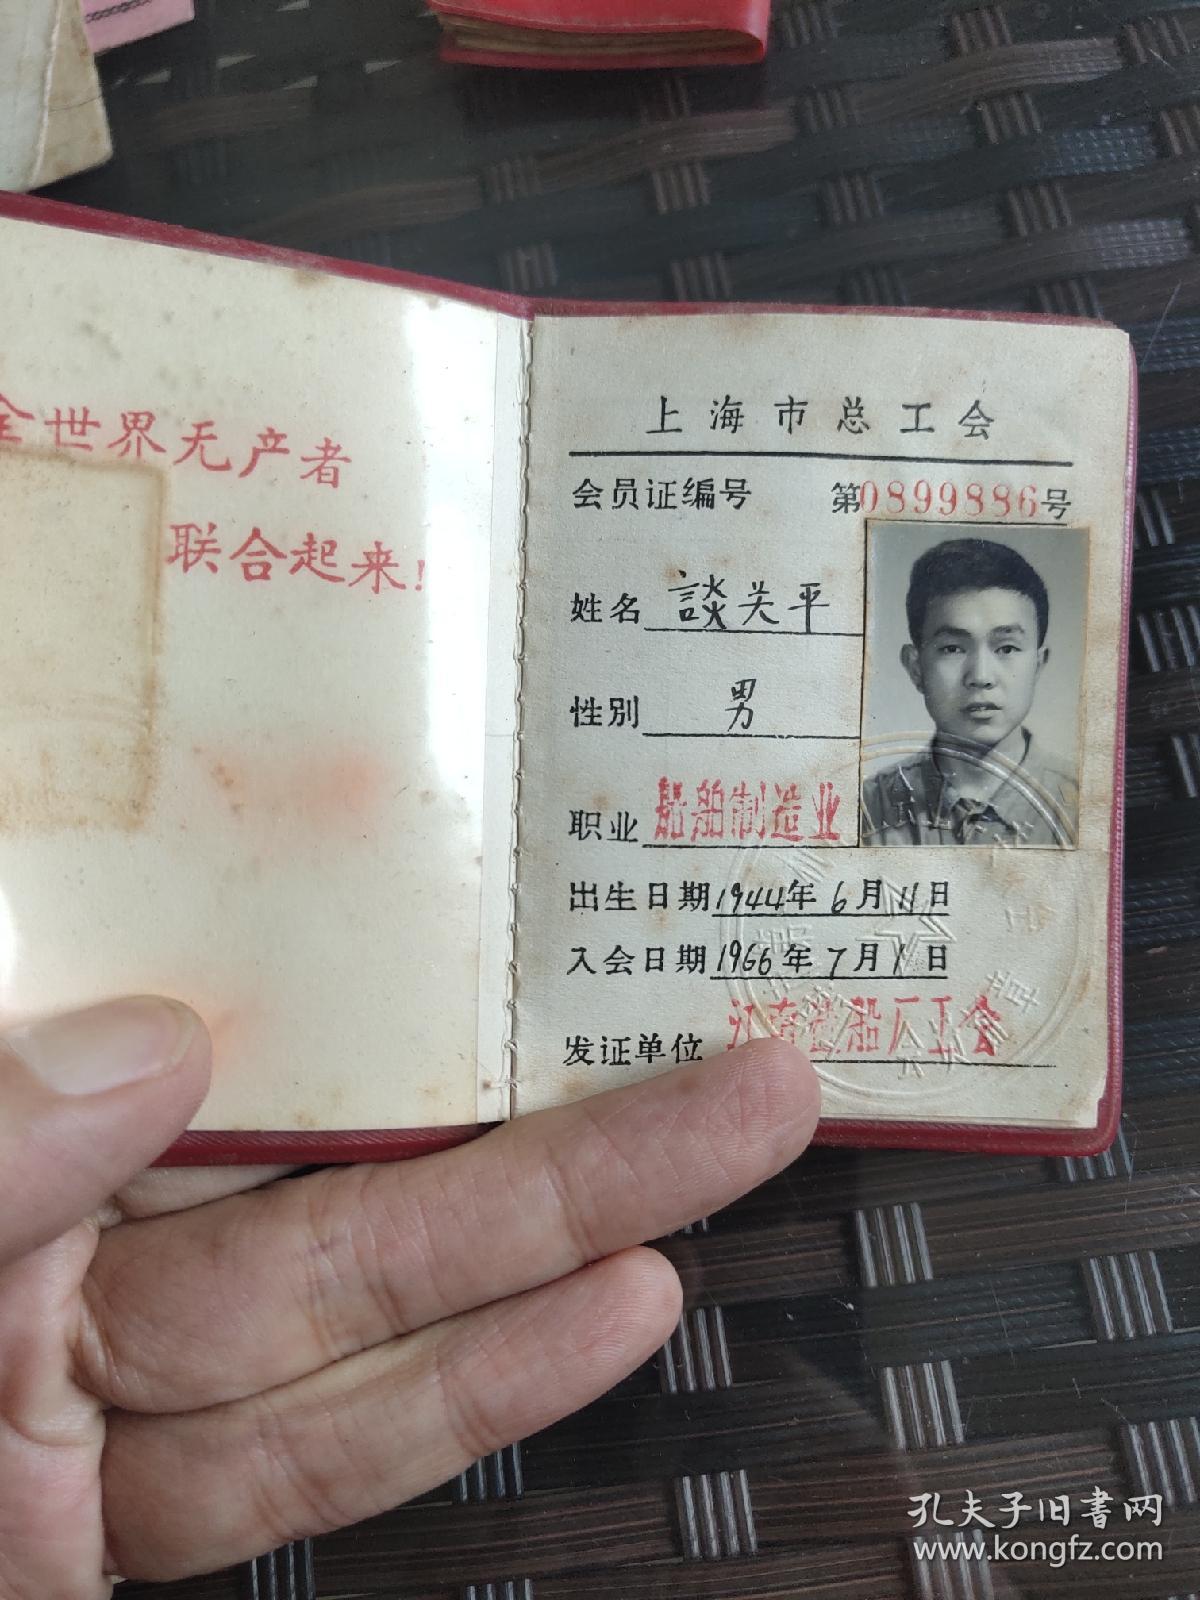 全世界无产者
联合起来!
上海市总工会
会员证编号 第0899886号
姓名 談关平
性别 男
职业 船舶制造业
出生日期 1944年6月11日
入会日期 1966年7月1日
发证单位 江南造船厂工会
孔夫子旧书网
www.kongfz.com